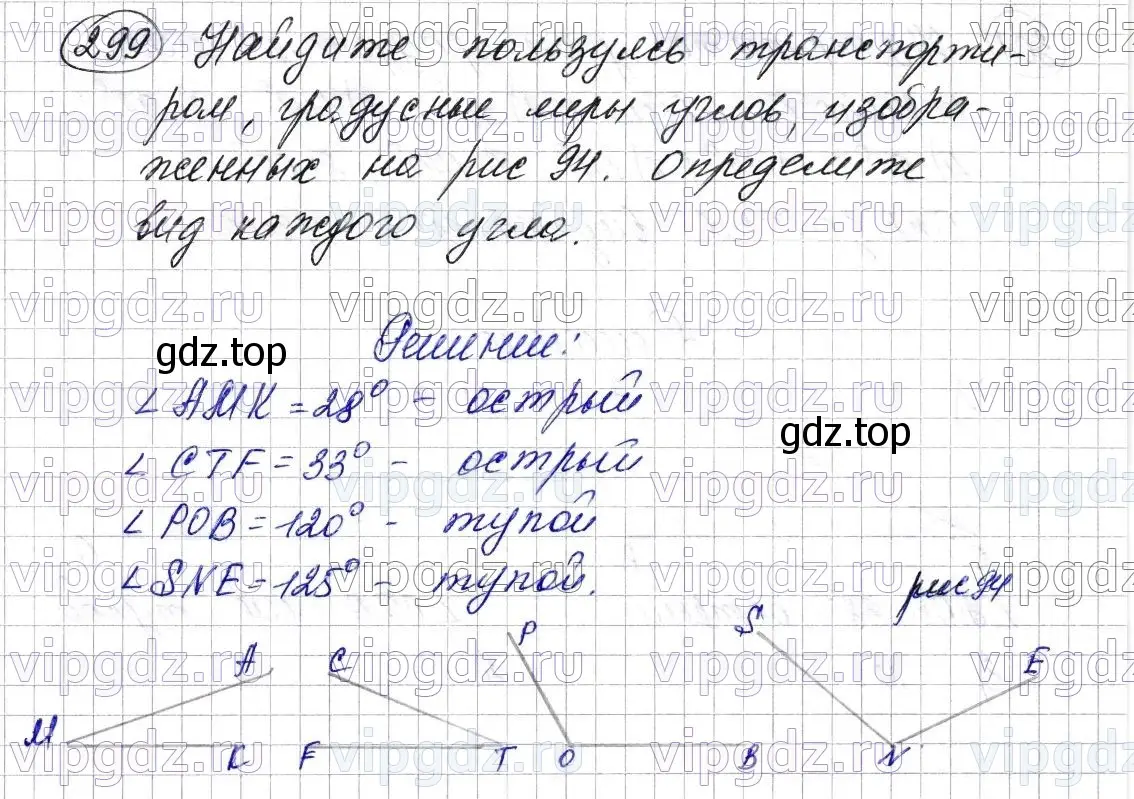 299 Найдите пользуясь транспорти-
ром, градусные меры углов, изобра-
женных на рис 94. Определите
вид каждого угла.
Решение:
gdz.top
∠ АМК = 28° - острый
∠ CTF = 33° - острый
gdz.top
∠ POB = 120° - тупой
∠ SNE = 125° - тупой.
рис 94
P S
A C E
M K F T O B N
vipgdz.ru